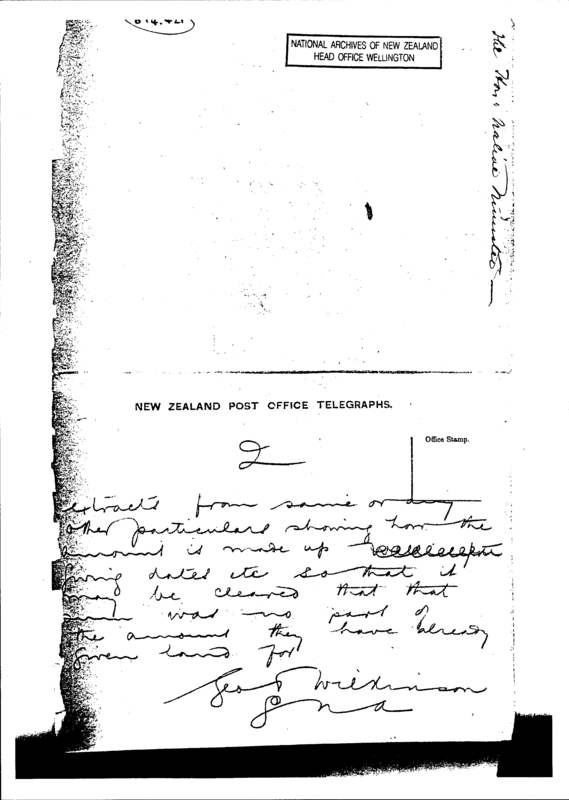 NATIONAL ARCHIVES OF NEW ZEALAND
HEAD OFFICE WELLINGTON
The Hon. Native Minister
NEW ZEALAND POST OFFICE TELEGRAPHS.
Office Stamp.
2
extracts from same or any
other particulars showing how the
amount is made up
giving dates etc so that it
may be cleared that that
was no part of
the amount they have already
given land for
Geo T Wilkinson